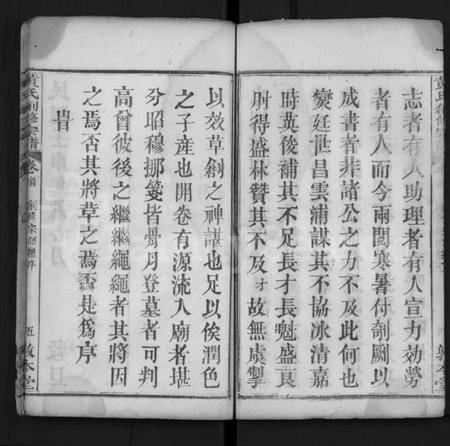 志者有人助理者有人宣力効勞
者有人而今兩閱寒暑付剞劂以
成書者非諸公之力不及此何也
爕廷世昌雲浦謀其不協冰清嘉
時英俊補其不足長才長魁盛良
肘得盛林贊其不及才故無虞掣
以效草創之神諶也足以俟潤色
之子產也開卷有源流入廟者堪
分昭穆挪箋皆骨月登墓者可判
高曾彼後之繼繼繩繩者其將因
之焉否其將草之焉否是爲序
旹
黃氏創修宗譜
卷首
五
敦本堂